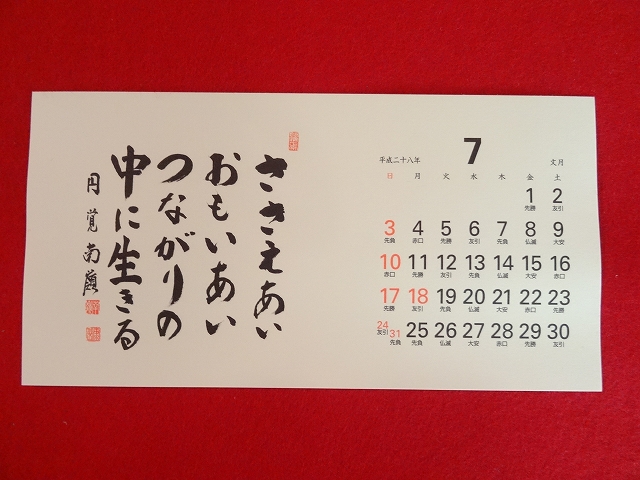 ささえあい
おもいあい
つながりの
中に生きる
円覚 南嶺
平成二十八年
7
文月
日 月 火 水 木 金 土
1 2
先勝 友引
3 4 5 6 7 8 9
先負 赤口 先勝 友引 先負 仏滅 大安
10 11 12 13 14 15 16
赤口 先勝 友引 先負 仏滅 大安 赤口
17 18 19 20 21 22 23
先勝 友引 先負 仏滅 大安 赤口 先勝
24 31 25 26 27 28 29 30
友引 先負 先負 仏滅 大安 赤口 先勝 友引